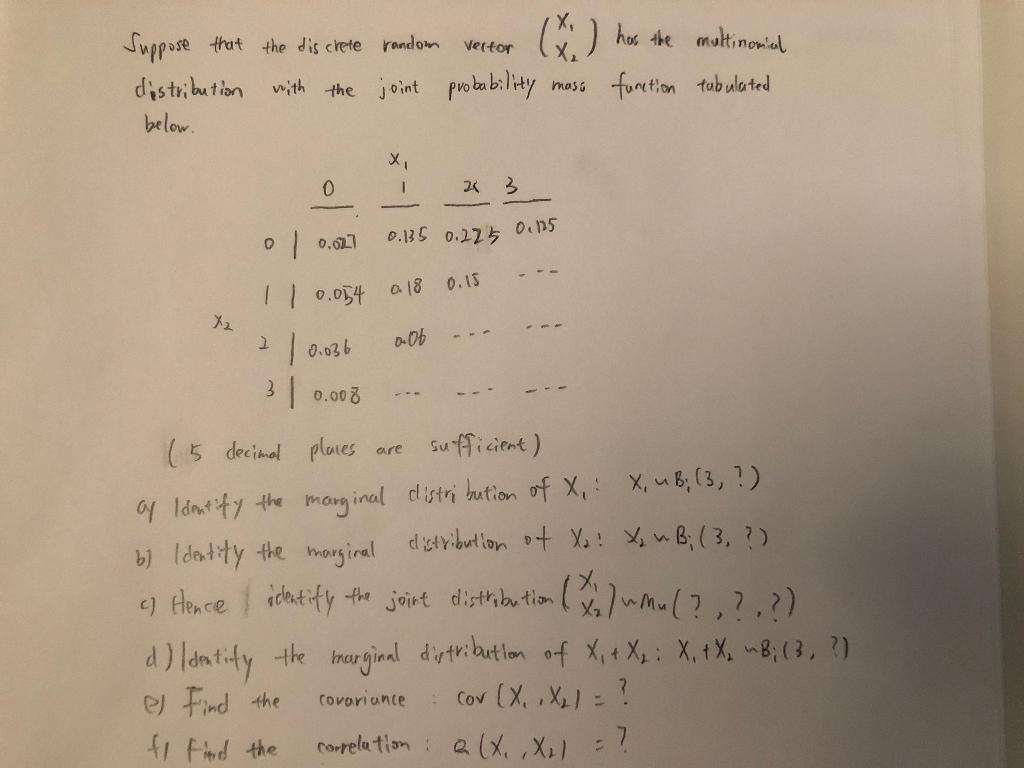 Suppose that the discrete random vector (X₁ X₂) has the multinomial
distribution with the joint probability mass function tabulated
below.
X₁
0 1 2 3
0 | 0.027 0.135 0.225 0.125
1 | 0.054 0.18 0.15 ---
X₂
2 | 0.036 0.06 --- ---
3 | 0.008 --- --- ---
(5 decimal places are sufficient)
a) Identify the marginal distribution of X₁: X₁ ~ Bi(3, ?)
b) Identify the marginal distribution of X₂: X₂ ~ Bi(3, ?)
c) Hence identify the joint distribution (X₁ X₂) ~ Mu(?, ?, ?)
d) Identify the marginal distribution of X₁ + X₂: X₁ + X₂ ~ Bi(3, ?)
e) Find the covariance : cov (X₁, X₂) = ?
f) Find the correlation : (X₁, X₂) = ?